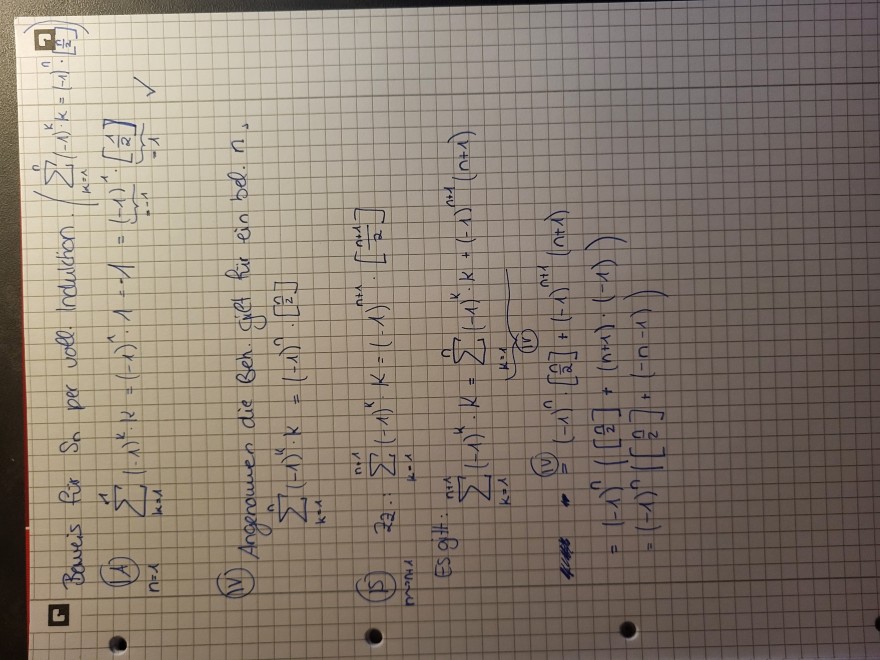 Beweis für Sn per voll. Induktion. ( ∑_{k=1}^{n} (-1)^k · k = (-1)^n · [n/2] )
(IA) n=1 ∑_{k=1}^{1} (-1)^k · k = (-1)^1 · 1 = -1 = (-1)^1 · [1/2] ✓
= -1 = 1
(IV) Angenommen die Beh. gilt für ein bel. n,
∑_{k=1}^{n} (-1)^k · k = (-1)^n · [n/2]
(IS) n→n+1 ZZ.: ∑_{k=1}^{n+1} (-1)^k · k = (-1)^{n+1} · [n+1/2]
Es gilt: ∑_{k=1}^{n+1} (-1)^k · k = ∑_{k=1}^{n} (-1)^k · k + (-1)^{n+1} (n+1)
(IV)
(IV) = (-1)^n · [n/2] + (-1)^{n+1} (n+1)
= (-1)^n ( [n/2] + (n+1) · (-1) )
= (-1)^n ( [n/2] + (-n-1) )